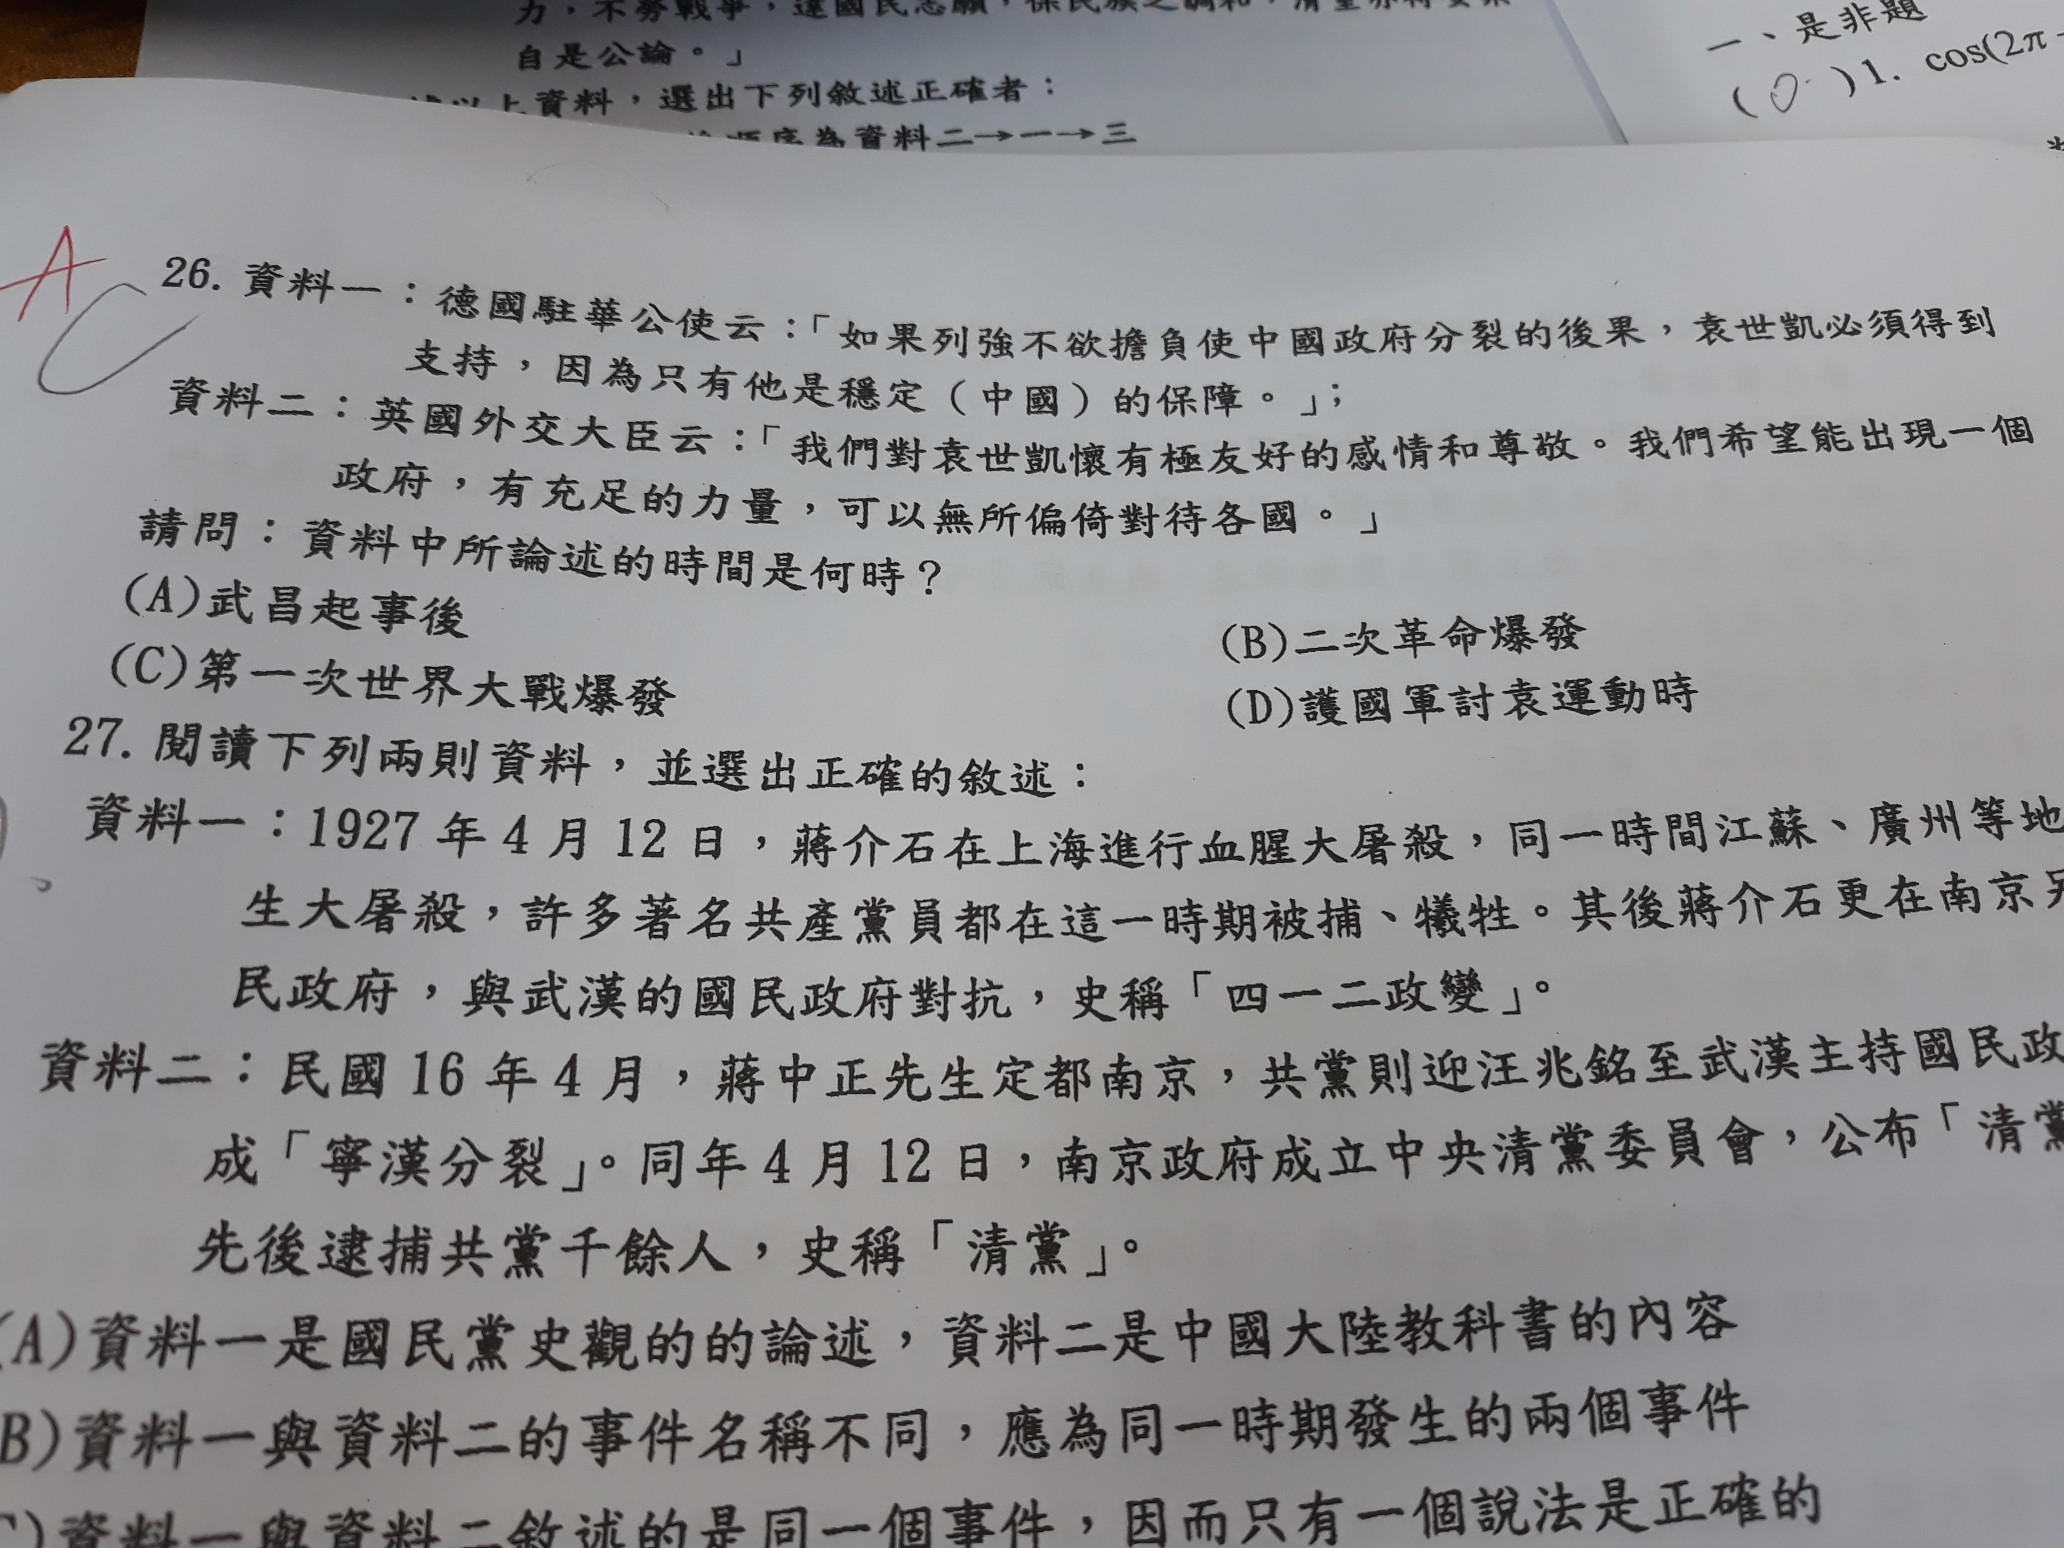 自是公論。」
上資料，選出下列敘述正確者：
序為資料二→一→三
一、是非題
( 0 ) 1. cos(2π
A
C
26. 資料一：德國駐華公使云：「如果列強不欲擔負使中國政府分裂的後果，袁世凱必須得到
支持，因為只有他是穩定（中國）的保障。」；
資料二：英國外交大臣云：「我們對袁世凱懷有極友好的感情和尊敬。我們希望能出現一個
政府，有充足的力量，可以無所偏倚對待各國。」
請問：資料中所論述的時間是何時？
(A)武昌起事後
(B)二次革命爆發
(C)第一次世界大戰爆發
(D)護國軍討袁運動時
27. 閱讀下列兩則資料，並選出正確的敘述：
資料一：1927 年 4 月 12 日，蔣介石在上海進行血腥大屠殺，同一時間江蘇、廣州等地
生大屠殺，許多著名共產黨員都在這一時期被捕、犧牲。其後蔣介石更在南京另
民政府，與武漢的國民政府對抗，史稱「四一二政變」。
資料二：民國 16 年 4 月，蔣中正先生定都南京，共黨則迎汪兆銘至武漢主持國民政
成「寧漢分裂」。同年 4 月 12 日，南京政府成立中央清黨委員會，公布「清黨
先後逮捕共黨千餘人，史稱「清黨」。
(A)資料一是國民黨史觀的的論述，資料二是中國大陸教科書的內容
B)資料一與資料二的事件名稱不同，應為同一時期發生的兩個事件
)資料一與資料二敘述的是同一個事件，因而只有一個說法是正確的